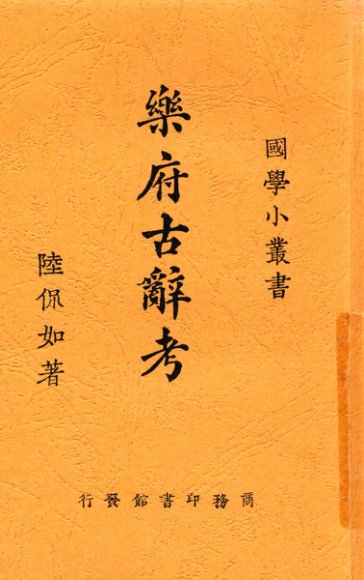 國學小叢書
樂府古辭考
陸侃如著
商務印書館發行